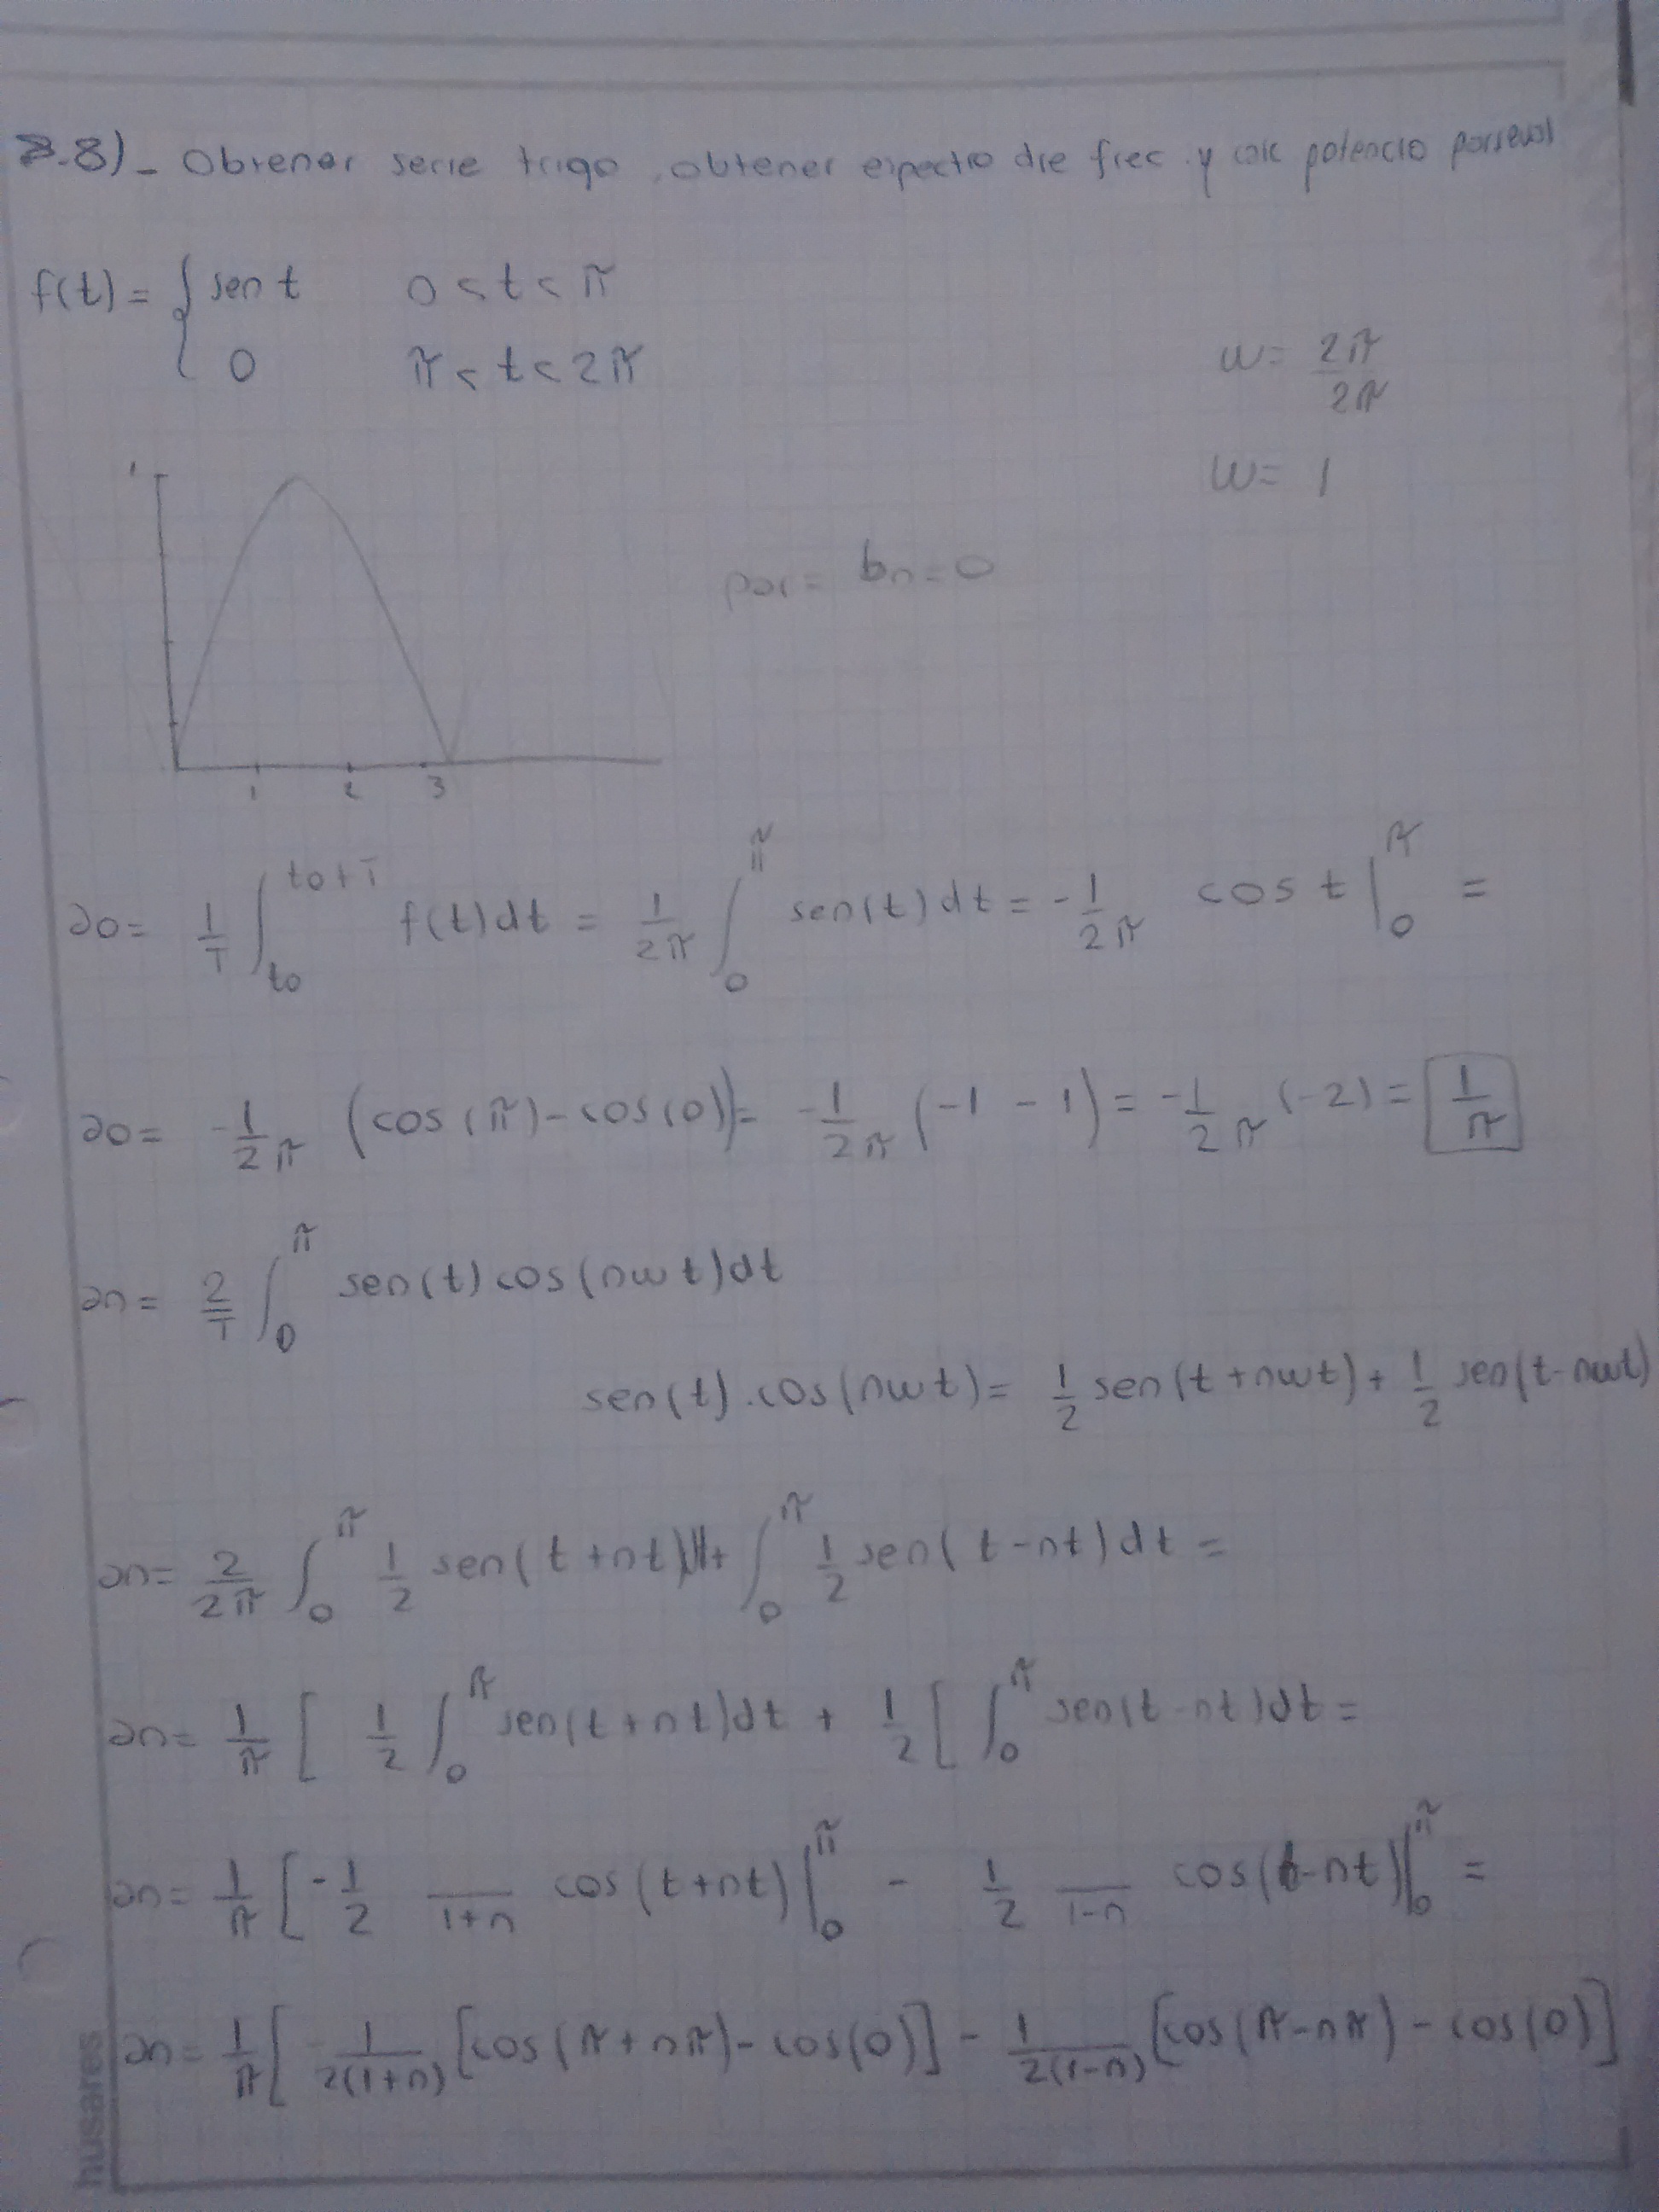 8.8)- Obtener serie trigo, obtener espectro die frec y calc potencia parseval
f(t) = { sen t 0 < t < π
0 π < t < 2π
w = 2π/2π
w = 1
1
par = bn = 0
1 2 3
a0 = 1/T ∫_{t0}^{t0+T} f(t)dt = 1/2π ∫_0^π sen(t)dt = -1/2π cos t |_0^π =
a0 = -1/2π (cos(π) - cos(0)) = -1/2π (-1 - 1) = -1/2π (-2) = 1/π
an = 2/T ∫_0^π sen(t) cos(nwt)dt
sen(t) . cos(nwt) = 1/2 sen(t + nwt) + 1/2 sen(t - nwt)
an = 2/2π ∫_0^π 1/2 sen(t + nt)dt + ∫_0^π 1/2 sen(t - nt)dt =
an = 1/π [ 1/2 ∫_0^π sen(t + nt)dt + 1/2 [ ∫_0^π sen(t - nt)dt =
an = 1/π [ -1/2 /(1+n) cos(t + nt) |_0^π - 1/2 /(1-n) cos(t - nt) |_0^π =
an = 1/π [ -1/2(1+n) [cos(π + nπ) - cos(0)] - 1/2(1-n) [cos(π - nπ) - cos(0)]
husares